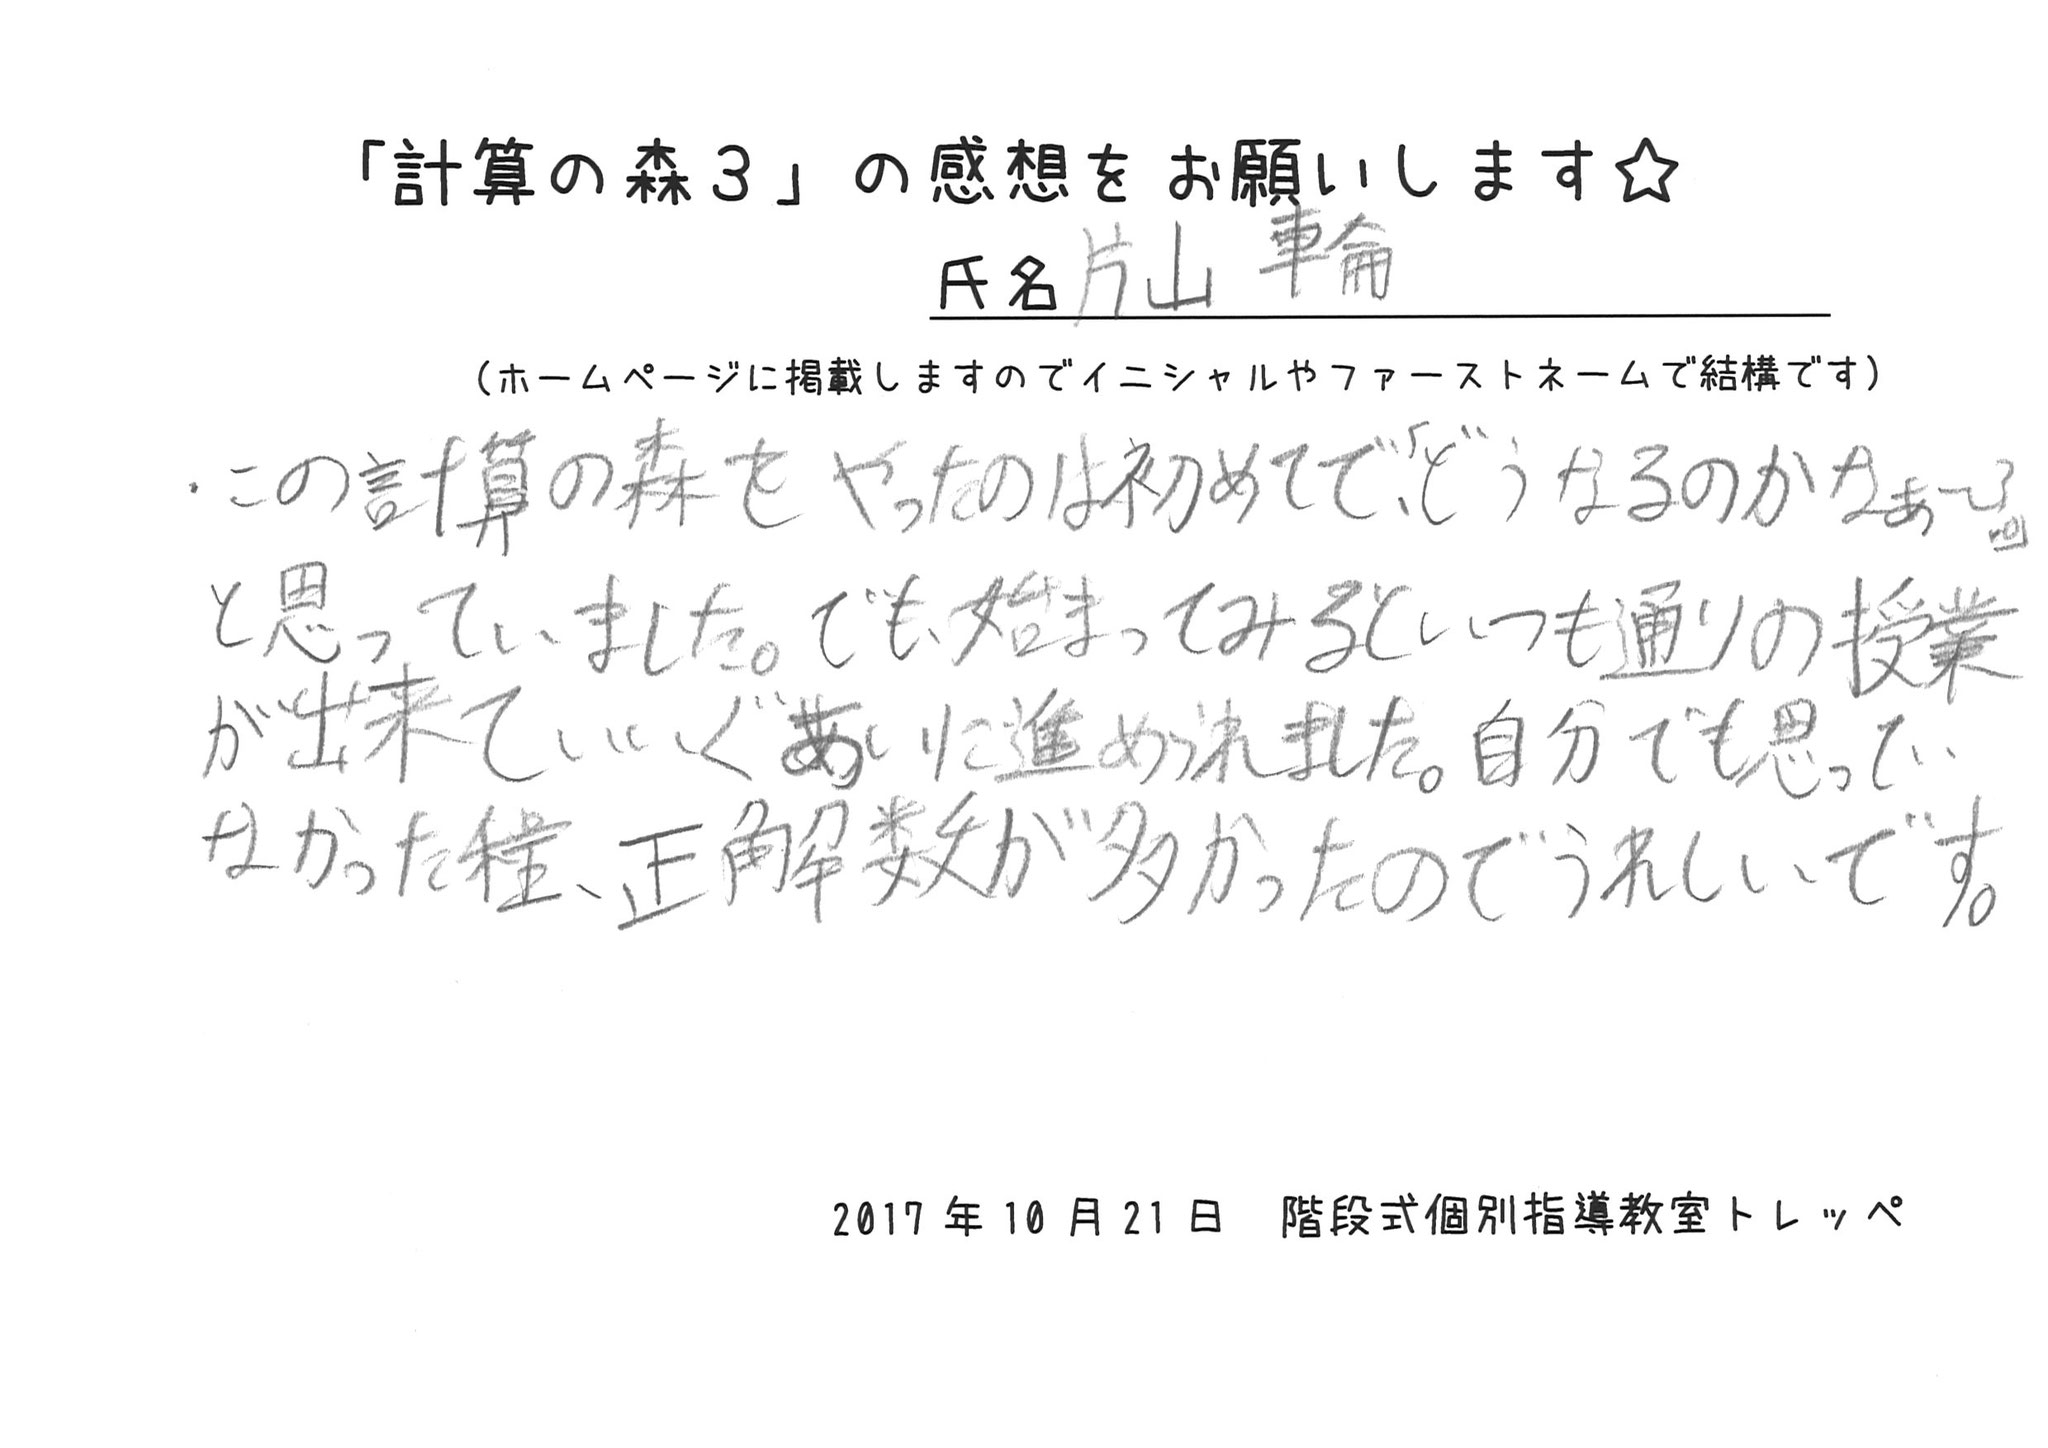 「計算の森3」の感想をお願いします☆
氏名 片山 輪
(ホームページに掲載しますのでイニシャルやファーストネームで結構です)
・この計算の森をやったのは初めてで、「どうなるのかなぁ～?」
と思っていました。でも、始まってみるといつも通りの授業
が出来ていいぐあいに進められました。自分でも思ってい
なかった程、正解数が多かったのでうれしいです。
2017年10月21日 階段式個別指導教室トレッペ